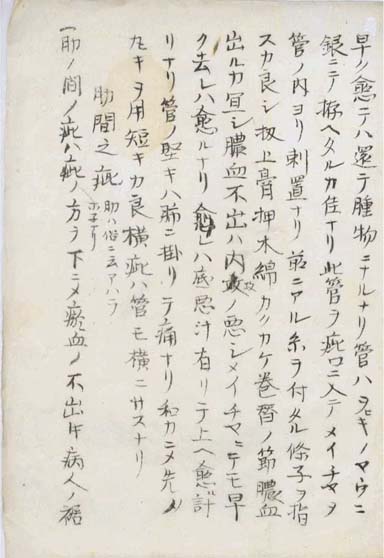 早ク愈テハ還テ腫物ニナルナリ管ハ丸キノマウニ
銀ニテ拵ヘタルカ佳ナリ此管ヲ疵口ニ入テメイチマヲ
管ノ内ヨリ刺置ナリ前ニアル糸ヲ付タル條子ヲ指
スカ良シ扨上膏押木綿カクカケ巻替ノ節膿血
出ルカ宜シ膿血不出ハ内攻ノ悪シメイチマニテモ早
ク去レハ愈ルナリ愈レハ底悪汁有リテ上ヘ愈計
リナリ管ノ堅キハ節ニ掛リテ痛ナリ和カニメ先ノ
丸キヲ用短キカ良横疵ハ管モ横ニサスナリ
肋間之疵 肋ハ俗ニ云アハラ
ホ子ナリ
一肋ノ間ノ疵ハ疵ノ方ヲ下ニメ瘀血ノ不出片病人ノ裾